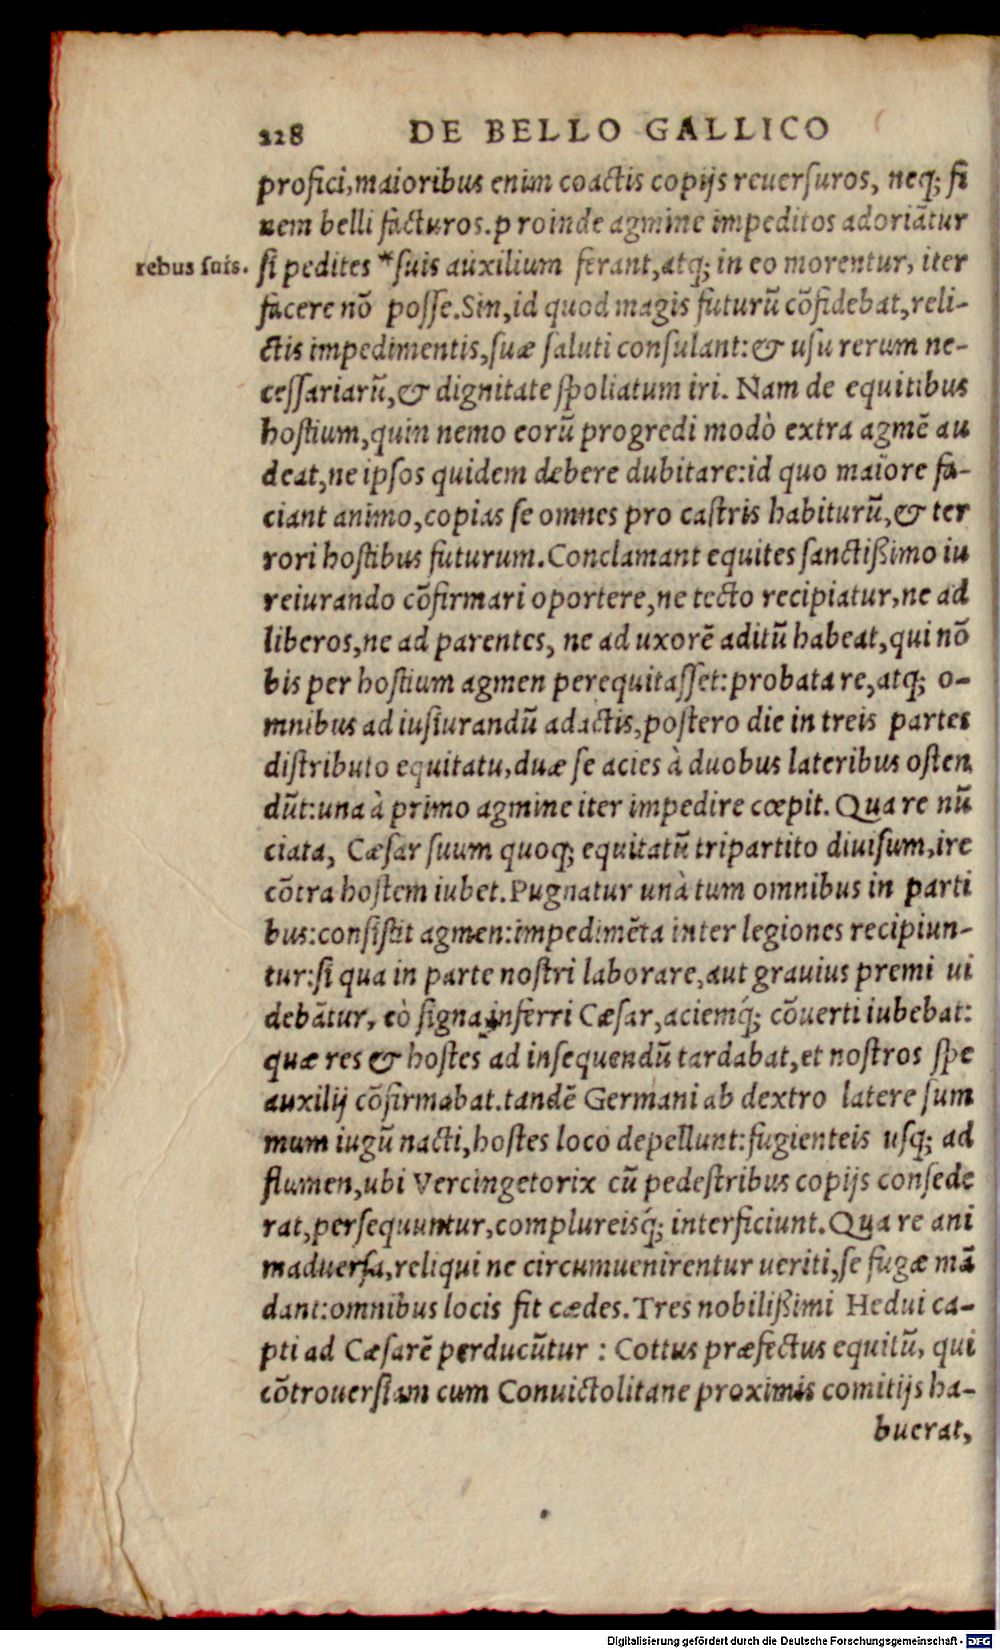 228 DE BELLO GALLICO
profici,maioribus enim coactis copijs reuerſuros, neq; fi
nem belli facturos.proinde agmine impeditos adoriãtur
rebus ſuis. ſi pedites *ſuis auxilium ferant,atq; in eo morentur, iter
facere nõ poſſe.Sin,id quod magis futurũ cõfidebat,reli-
ctis impedimentis,ſuæ ſaluti conſulant:& uſu rerum ne-
ceſſariarũ,& dignitate ſpoliatum iri. Nam de equitibus
hoſtium,quin nemo eorũ progredi modò extra agmẽ au
deat,ne ipſos quidem debere dubitare:id quo maiore fa-
ciant animo,copias ſe omnes pro caſtris habiturũ,& ter
rori hoſtibus futurum.Conclamant equites ſanctißimo iu
reiurando cõfirmari oportere,ne tecto recipiatur,ne ad
liberos,ne ad parentes, ne ad uxorẽ aditũ habeat,qui nõ
bis per hoſtium agmen perequitaſſet:probata re,atq; o-
mnibus ad iuſiurandũ adactis,poſtero die in treis partes
diſtributo equitatu,duæ ſe acies à duobus lateribus oſten
dũt:una à primo agmine iter impedire cœpit. Qua re nũ
ciata, Cæſar ſuum quoq; equitatũ tripartito diuiſum,ire
cõtra hoſtem iubet.Pugnatur unà tum omnibus in parti
bus:conſiſtit agmen:impedimẽta inter legiones recipiun-
tur:ſi qua in parte noſtri laborare,aut grauius premi ui
debãtur, eò ſigna inferri Cæſar,aciemq́; cõuerti iubebat:
quæ res & hoſtes ad inſequendũ tardabat,et noſtros ſpe
auxilij cõfirmabat.tandẽ Germani ab dextro latere ſum
mum iugũ nacti,hoſtes loco depellunt:fugienteis uſq; ad
flumen,ubi Vercingetorix cũ pedeſtribus copijs conſede
rat,perſequuntur,complureisq́; interficiunt.Qua re ani
maduerſa,reliqui ne circumuenirentur ueriti,ſe fugæ mã
dant:omnibus locis fit cædes.Tres nobilißimi Hedui ca-
pti ad Cæſarẽ perducũtur : Cottus præfectus equitũ, qui
cõtrouerſiam cum Conuictolitane proximis comitijs ha-
buerat,
Digitalisierung gefördert durch die Deutsche Forschungsgemeinschaft - DFG